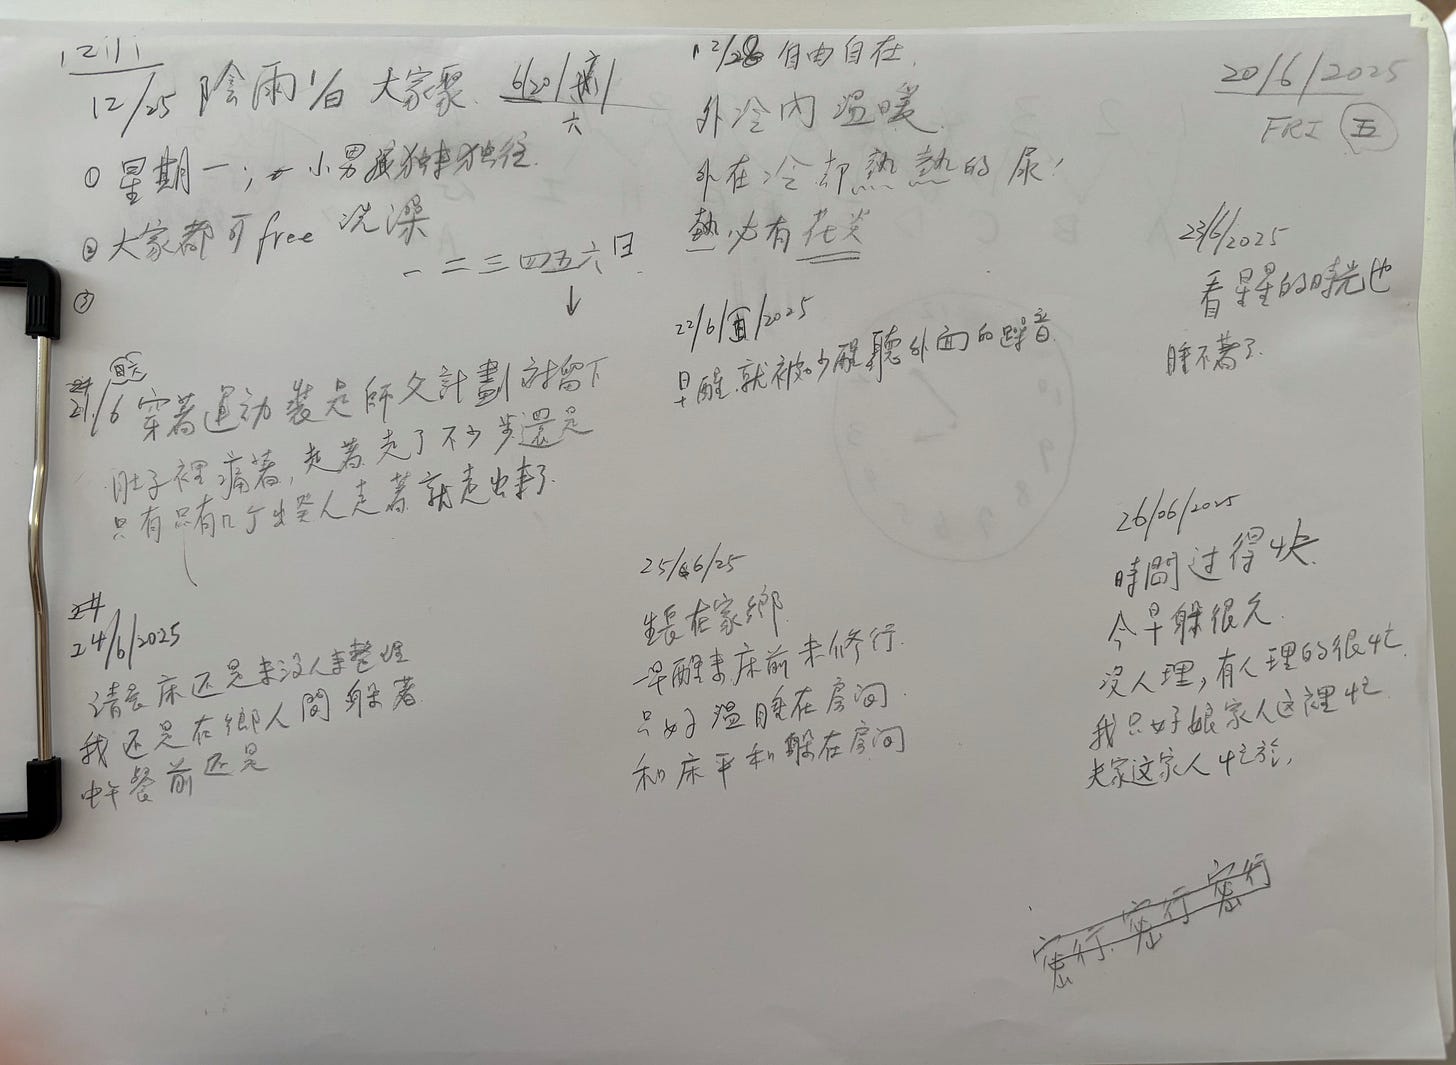 12/25 陰雨 1/8 大家聚 6/20/
六
① 星期一; 小男孩独來独往
② 大家都可 free 洗澡
一 二 三 四 五 六 日
↓
③
21/6 穿著運动裝是師父計劃討留下
肚子裡痛著,走著走了不少步還是
只有只有几个出癸人走著就走出來了
24/6/2025
請長床还是来没人来整理
我还是在鄉人間躲著
中午餐前还是
12/28 自由自在,
外冷內溫暖
外在冷却熱熱的尿!
熱必有花芖
22/6/日/2025
早醒就被吵醒聽外面的噪音
25/6/25
生長在家鄉
早醒来床前未修行
只好溫睡在房间
和床平和躲在房间
20/6/2025
FRI 五
23/6/2025
看星星的時光也
睡不著了
26/06/2025
時間过得快
今早躲很久
沒人理,有人理的很忙
我只好娘家人这裡忙
夫家这家人忙於,
密行 密行 密行